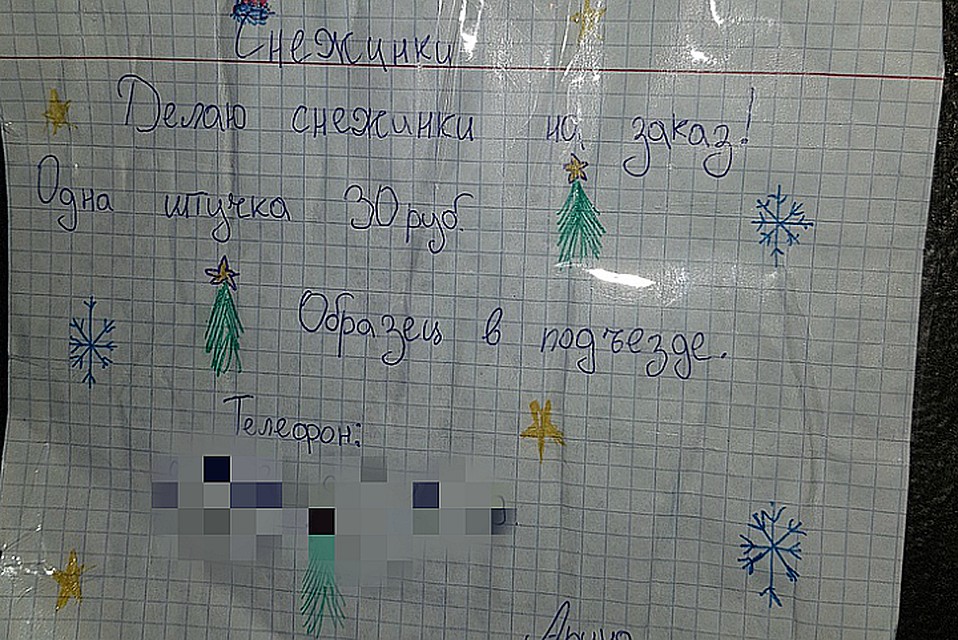 Снежинки
Делаю снежинки на заказ!
Одна штучка 30 руб.
Образец в подъезде.
Телефон: